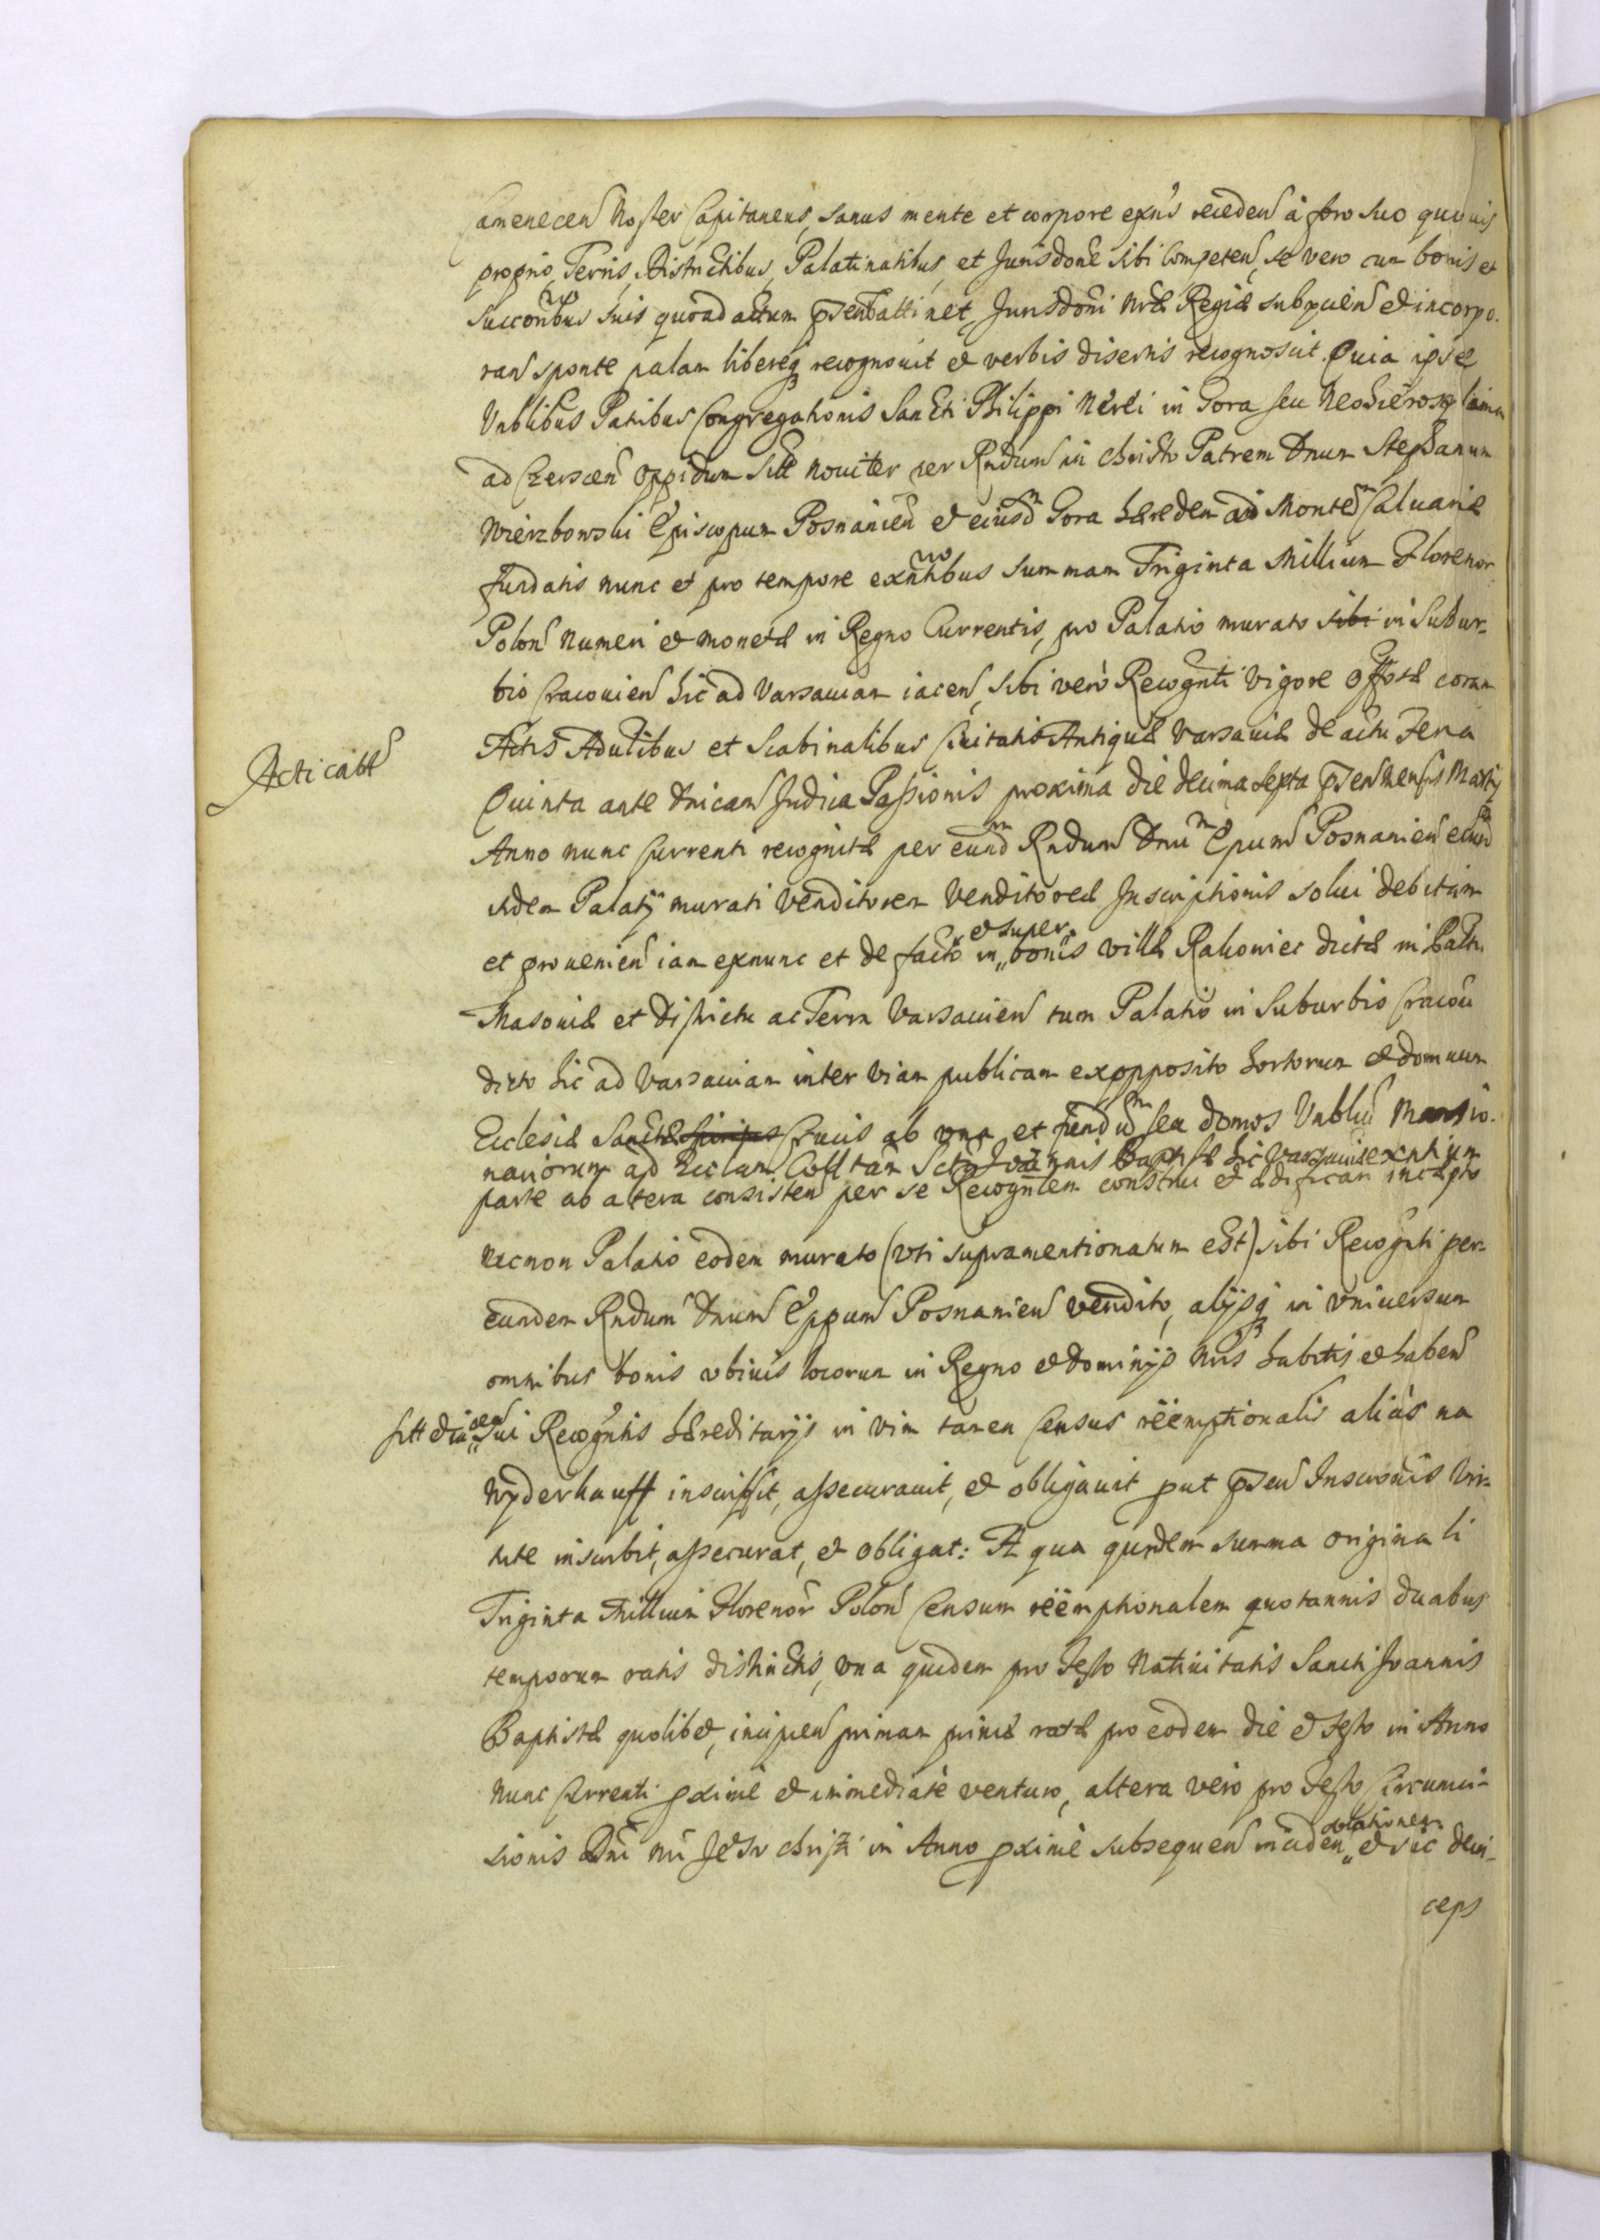 Camenecen Noster Capitaneus, sanus mente et corpore exns recedens à foro suo quouis
proprio, Terris, Districtibus, Palatinatibus, et Jurisdone sibi competen, se vero cum bonis et
succoribus suis quoad actum psen attinet, Jurisdoni nræ Regiæ subjiciens et incorpo-
rans sponte palam libereq recognouit et verbis disertis recognoscit. Quia ipse
Vnblibus Patribus Congregationis Sancti Philippi Nerei in Gora seu Neohierosolima
ad Czerscen oppidum sitt nouiter per Rndum in Christo Patrem Dnum Stephanum
Wierzbowski Episcopum Posnanien et eiusdm Gora hæredem ad Montem Caluariæ
fundatis nunc et pro tempore exntibus summam Triginta Millium Florenor
Polon numeri et monetæ in Regno Currentis, pro Palatio murato sibi in Subur-
bio Cracouien hic ad Varsauiam iacen, sibi verò Recognti vigore
coram
Actis Adultibus et Scabinalibus Ciuitatis Antiquæ Varsauiæ de actu Feria
Acticatt
Quinta ante Dnicam Judica Passionis proxima die decima septa psen Mensis Martij
Anno nunc Currenti recognitæ per eundm Rndum Dnum Epum Posnanien eiusd
idem Palatij murati Venditorem Venditoreæ Inscriptionis solui debitam
et prouenien iam exnunc et de facto in et super bonis villæ Rakowiec dictæ in Palttu
Masouiæ et Districtu ac Terra Varsauien tum Palatio in Suburbio Cracou
dicto hic ad Varsauiam inter viam publicam exopposito hortorum et domuum
Ecclesiæ Sanctæ Crucis ab vna et fundum seu domos Vnbliu Mansio-
nariorum ad Ecclam Colltam Scti Joannis Baptistæ hic Varsauiæ exntium
parte ab altera consisten per se Recogntem construi et ædificari incæpto
necnon Palatio eodem murato (vti supramentionatum est) sibi Recognti per-
eundem Rndum Dnum Eppum Posnanien vendito, alijsq in vniuersum
omnibus bonis vbiuis locorum in Regno et Dominijs nris habitis et haben
sui Recogntis hæreditarijs in vim tamen Census rëemptionalis aliàs na
Wyderkauff inscripsit, assecurauit, et obligauit put psen Inscrionis Vir-
tute inscribit, assecurat, et obligat: A qua quidem summa originali
Triginta Millium Florenor Polon Censum rëemptionalem quotannis duabus
temporum ratis distinctis, vna quidem pro Festo Natiuitatis Sancti Joannis
Baptistæ quolibet, incipien primam primæ ratæ pro eodem die et festo in Anno
nunc Currenti pximè et immediatè venturo, altera verò pro Festo Circumci-
sionis Dni nri Jesu Christi in Anno pximè subsequen et sic dein-
ceps